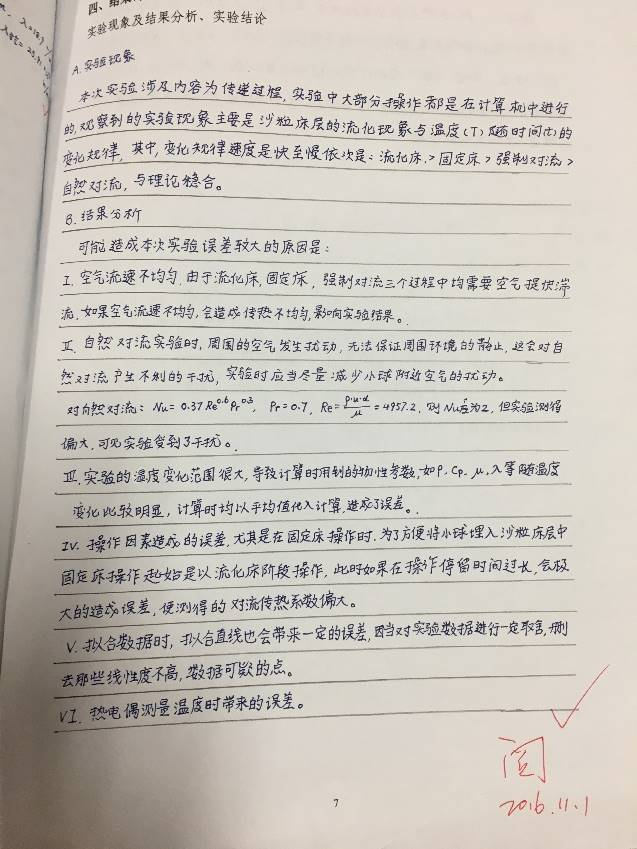 四、结果
实验现象及结果分析、实验结论
A.实验现象
本次实验涉及内容为传递过程,实验中大部分操作都是在计算机中进行
的,观察到的实验现象主要是沙粒床层的流化现象与温度(T)随时间(t)的
变化规律,其中,变化规律速度是快至慢依次是:流化床>固定床>强制对流>
自然对流,与理论稳合。
B.结果分析
可能造成本次实验误差较大的原因是:
I.空气流速不均匀.由于流化床,固定床,强制对流三个过程中均需要空气提供湍
流,如果空气流速不均匀,会造成传热不均匀,影响实验结果。
II.自然对流实验时,周围的空气发生扰动,无法保证周围环境的静止,这会对自
然对流产生不利的干扰,实验时应当尽量减少小球附近空气的扰动。
对自然对流:Nu=0.37Re^0.6Pr^0.3, Pr=0.7, Re=ρ·u·d/μ=4957.2,则Nu应为2,但实验测得
偏大,可见实验受到了干扰。
III.实验的温度变化范围很大,导致计算时用到的物性参数,如ρ、Cp、μ、λ等随温度
变化比较明显,计算时均以平均值代入计算,造成了误差。
IV.操作因素造成的误差,尤其是在固定床操作时.为了方便将小球埋入沙粒床层中
固定床操作起始是以流化床阶段操作,此时如果在操作停留时间过长,会极
大的造成误差,使测得的对流传热系数偏大。
V.拟合数据时,拟合直线也会带来一定的误差,因当对实验数据进行一定取舍,删
去那些线性度不高,数据可疑的点。
VI.热电偶测量温度时带来的误差。
阅
2016.11.1
7